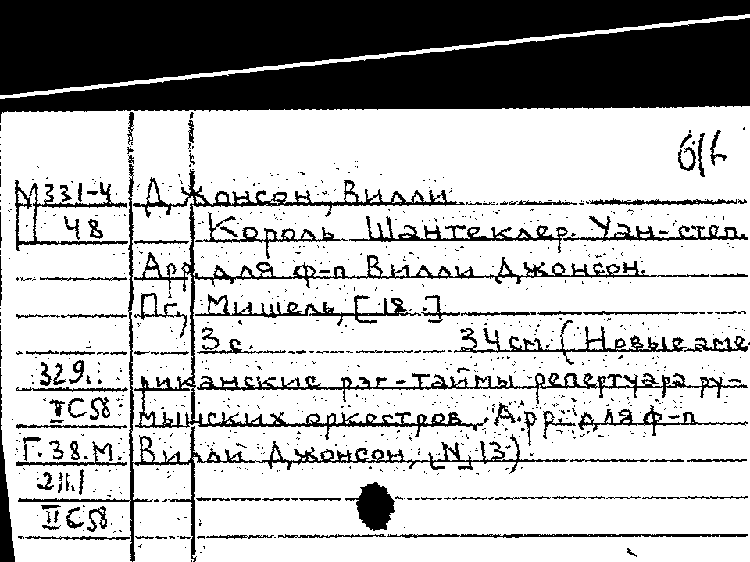 б/б
М331-4 Джонсон, Вилли
48 Король Шантеклер. Уан-степ.
Арр. для ф-п Вилли Джонсон.
Пг., Мишель, [18 .]
3 с. 34 см. (Новые аме-
329.. риканские рэг-таймы репертуара ру-
II С 58 мынских оркестров. Арр. для ф-п
Г.38.М. Вилли Джонсон, [N] 13)
211.1
II С 58